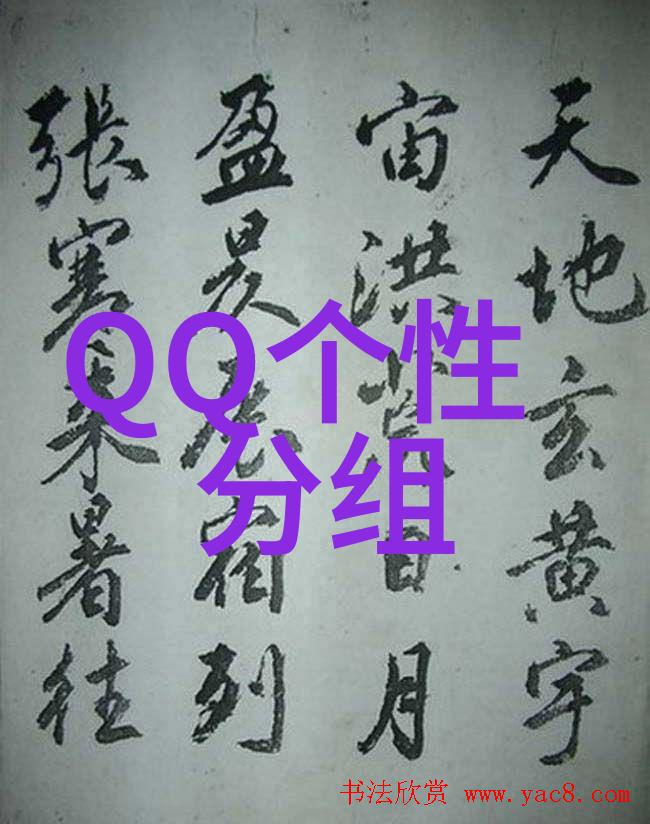 天地玄黄宇
宙洪荒日月
盈昃辰宿列
張寒来暑往
QQ个性
分组
书法欣赏 www.yac8.com